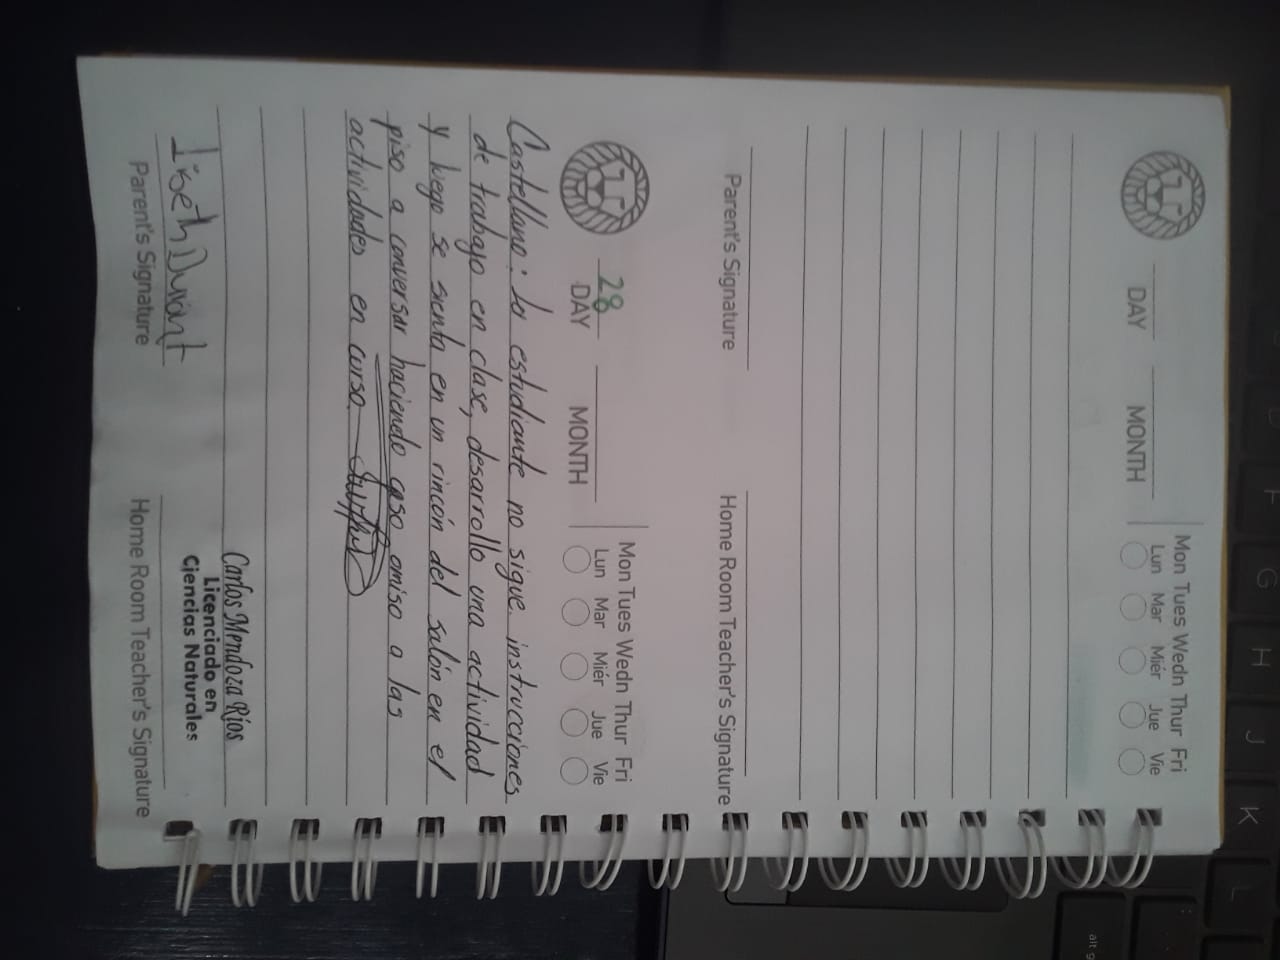 F G H J K L
alt g
DAY MONTH
Mon Tues Wedn Thur Fri
Lun Mar Miér Jue Vie
Parent's Signature
Home Room Teacher's Signature
28
DAY MONTH
Mon Tues Wedn Thur Fri
Lun Mar Miér Jue Vie
Castellano: La estudiante no sigue instrucciones
de trabajo en clase, desarrollo una actividad
y luego se sienta en un rincón del salón en el
piso a conversar haciendo caso omiso a las
actividades en curso.
Carlos Mendoza Ríos
Licenciado en
Ciencias Naturales
Liseth Durant
Parent's Signature
Home Room Teacher's Signature